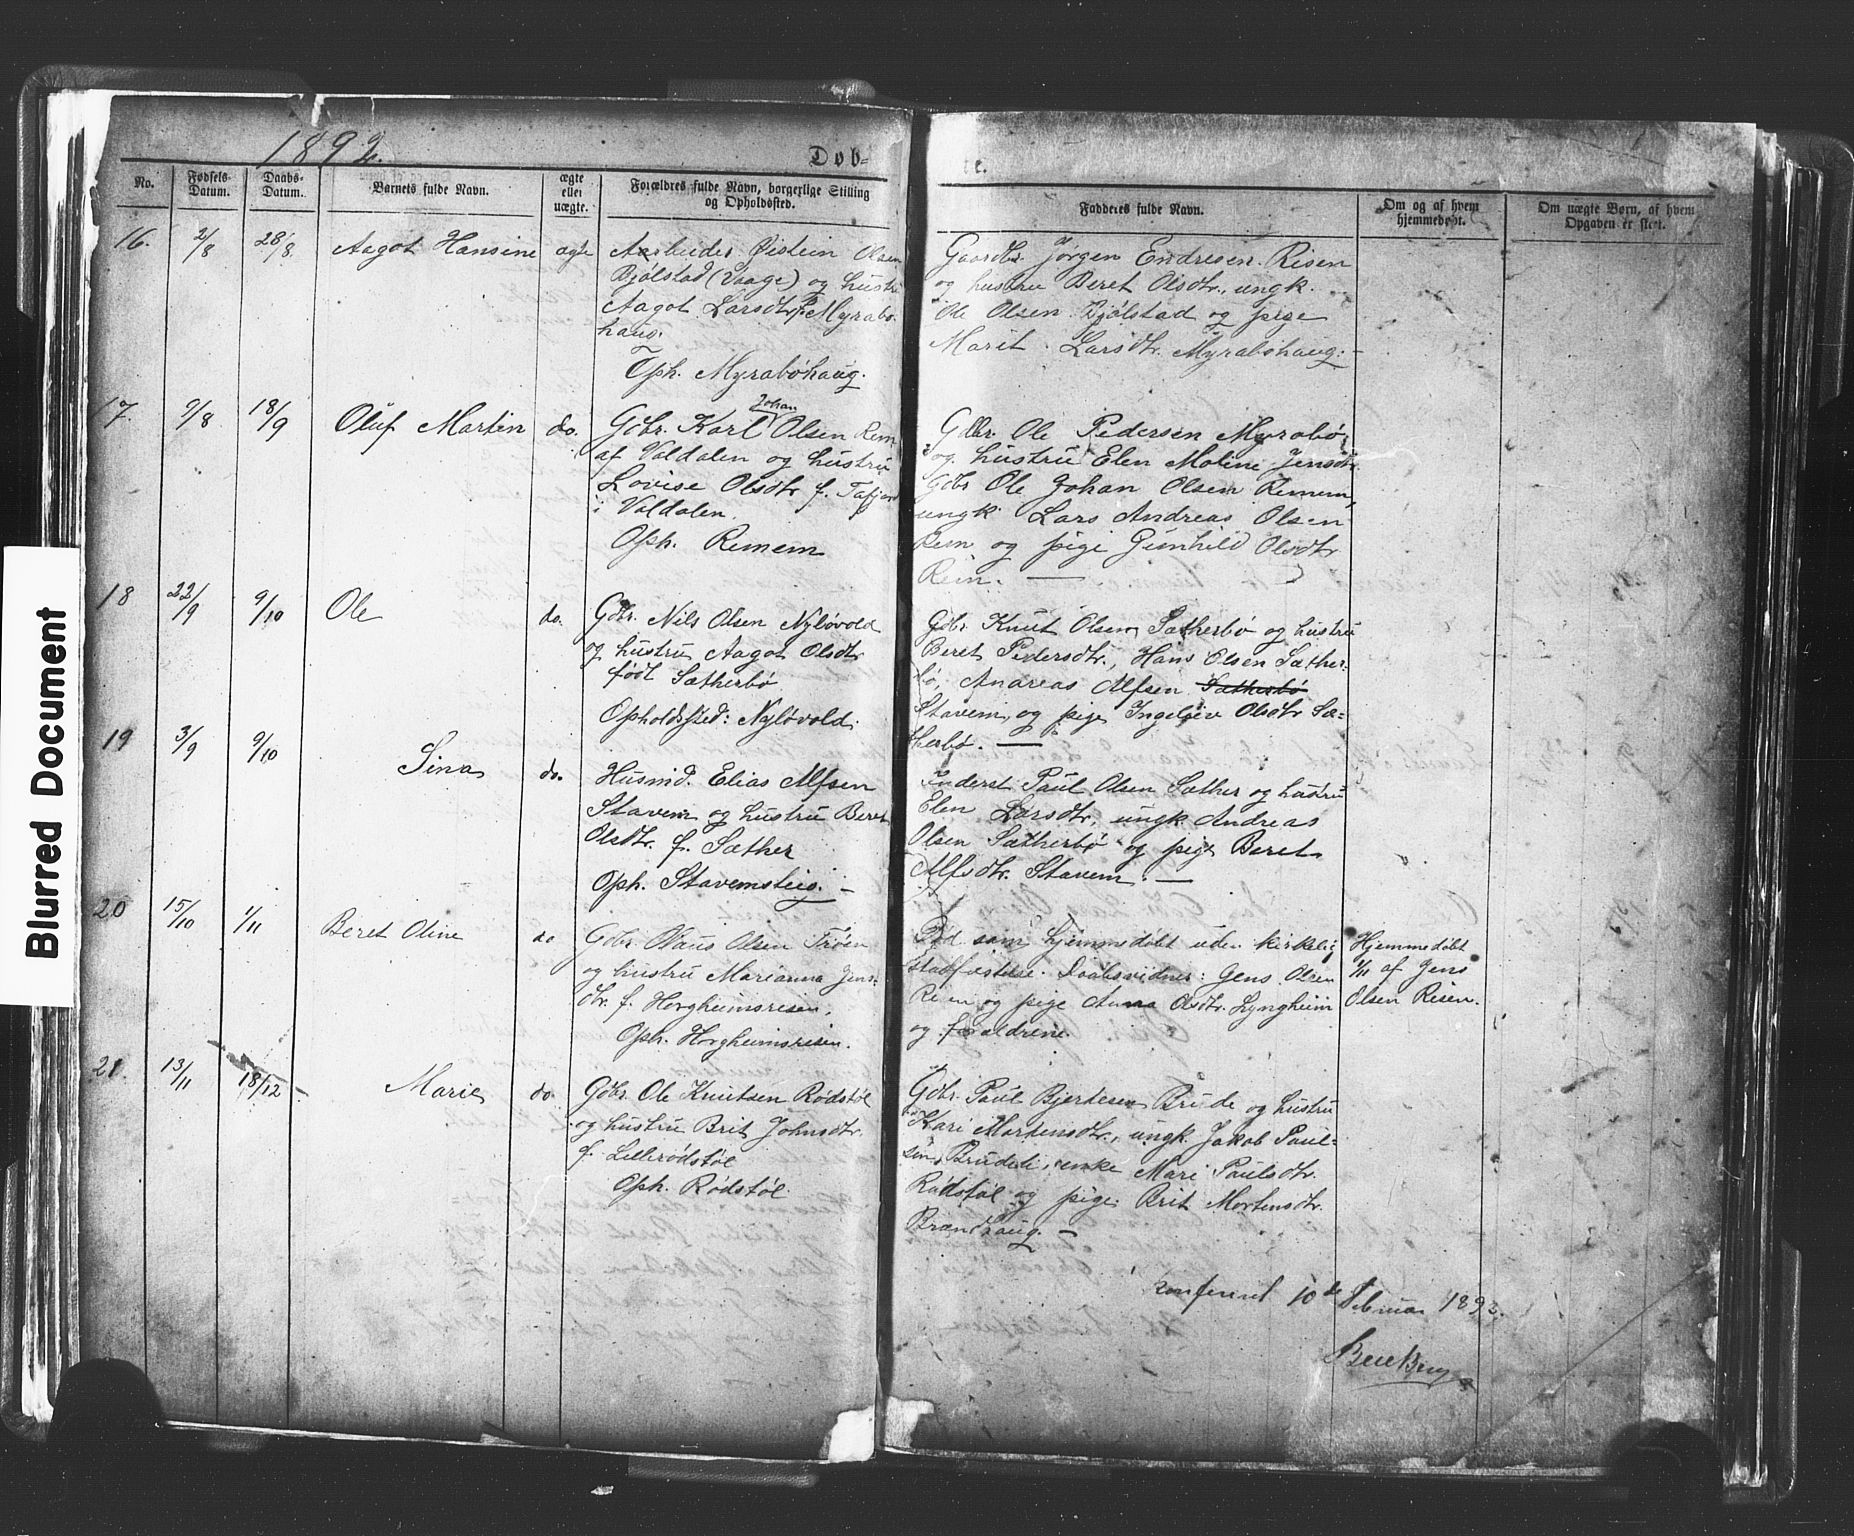 Blurred Document
1892.
Døb-
te.
No.
Fødsels-
Datum.
Daabs-
Datum.
Barnets fulde Navn.
ægte
eller
uægte.
Forældres fulde Navn, borgerlige Stilling
og Opholdssted.
Fadderes fulde Navn.
Om og af hvem
hjemmedøbt.
Om uægte Børn, af hvem
Opgaven er sket.
16.
2/8
28/8
Aagot Hansine
ægte
Aarbeider Øistein Olsen
Bjølstad (Vaage) og hustru
Aagot Larsdtr. f. Myrabø-
haug.
Oph. Myrabøhaug.
Gaardbr. Jørgen Endresen Risen
og hustru Beret Olsdtr., ungk.
Ole Olsen Bjølstad og pige
Marit Larsdtr. Myrabøhaug. -
17.
9/8
18/9
Oluf Martin
do.
Johan
Gdbr. Karl Olsen Rem
af Valdalen og hustru
Lovise Olsdtr. f. Tafjord
i Valdalen.
Oph. Remem
Gdbr. Ole Pedersen Myrabø,
og hustru Elen Moline Jensdtr.
Gdbr Ole Johan Olsen Remem,
ungk. Lars Andreas Olsen
Rem og pige Gunhild Olsdtr
Rem. —
18
22/9
9/10
Ole
do.
Gdbr. Nils Olsen Nyløvold
og hustru Aagot Olsdtr
født Sætherbø
Opholdssted: Nyløvold.
Gdbr. Knut Olsen Sætherbø og hustru
Beret Pedersdtr., Hans Olsen Sæther-
bø, Andreas Alfsen Sætherbø
Stavem, og pige Ingeleiv Olsdtr Sæ-
therbø. —
19
3/9
9/10
Sina
do.
Husmd. Elias Alfsen
Stavem og hustru Beret
Olsdtr. f. Sæther
Oph. Stavemsteig. -
Inderst Paul Olsen Sæther og hustru
Elen Larsdtr., ungk. Andreas
Olsen Sætherbø og pige Beret
Alfsdtr. Stavem. —
20
15/10
1/11
Beret Oline
do
Gdbr. Olaus Olsen Trøen
og hustru Marianna Jens-
dtr. f. Horgheimsreisen.
Oph. Horgheimsreisen.
Død som hjemmedøbt uden kirkelig
stadfæstelse. Daabsvidner: Jens Olsen
Reien og pige Anna Olsdtr. Lyngheim
og forældrene.
Hjemmedøbt
1/11 af Jens
Olsen Risen.
21.
13/11
18/12
Marie
do.
Gdbr. Ole Knutsen Rødstøl
og hustru Brit Johnsdtr.
f. Lillerødstøl
Oph. Rødstøl.
Gdbr. Paul Bjerdesen Brude og hustru
Kari Mortensdtr., ungk. Jakob Paul-
sen Brudeli, enke Mari Paulsdtr.
Rødstøl og pige Brit Mortensdtr.
Brandhaug. —
Konfereret 10de Februar 1893.